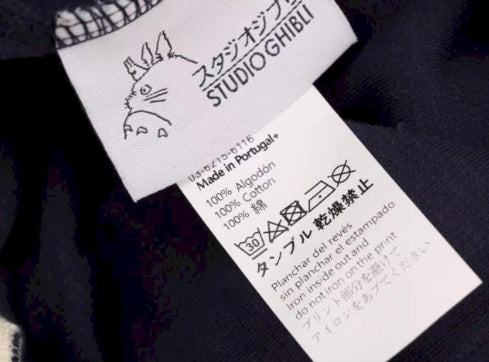 スタジオジブリ
STUDIO GHIBLI
03-6215-6116
Made in Portugal+
100% Algodón
100% Cotton
100% 綿
30
タンブル 乾燥禁止
Planchar del revés
sin planchar el estampado
Iron inside out and
do not iron on the print
プリント部分を避けて
アイロンをあててください